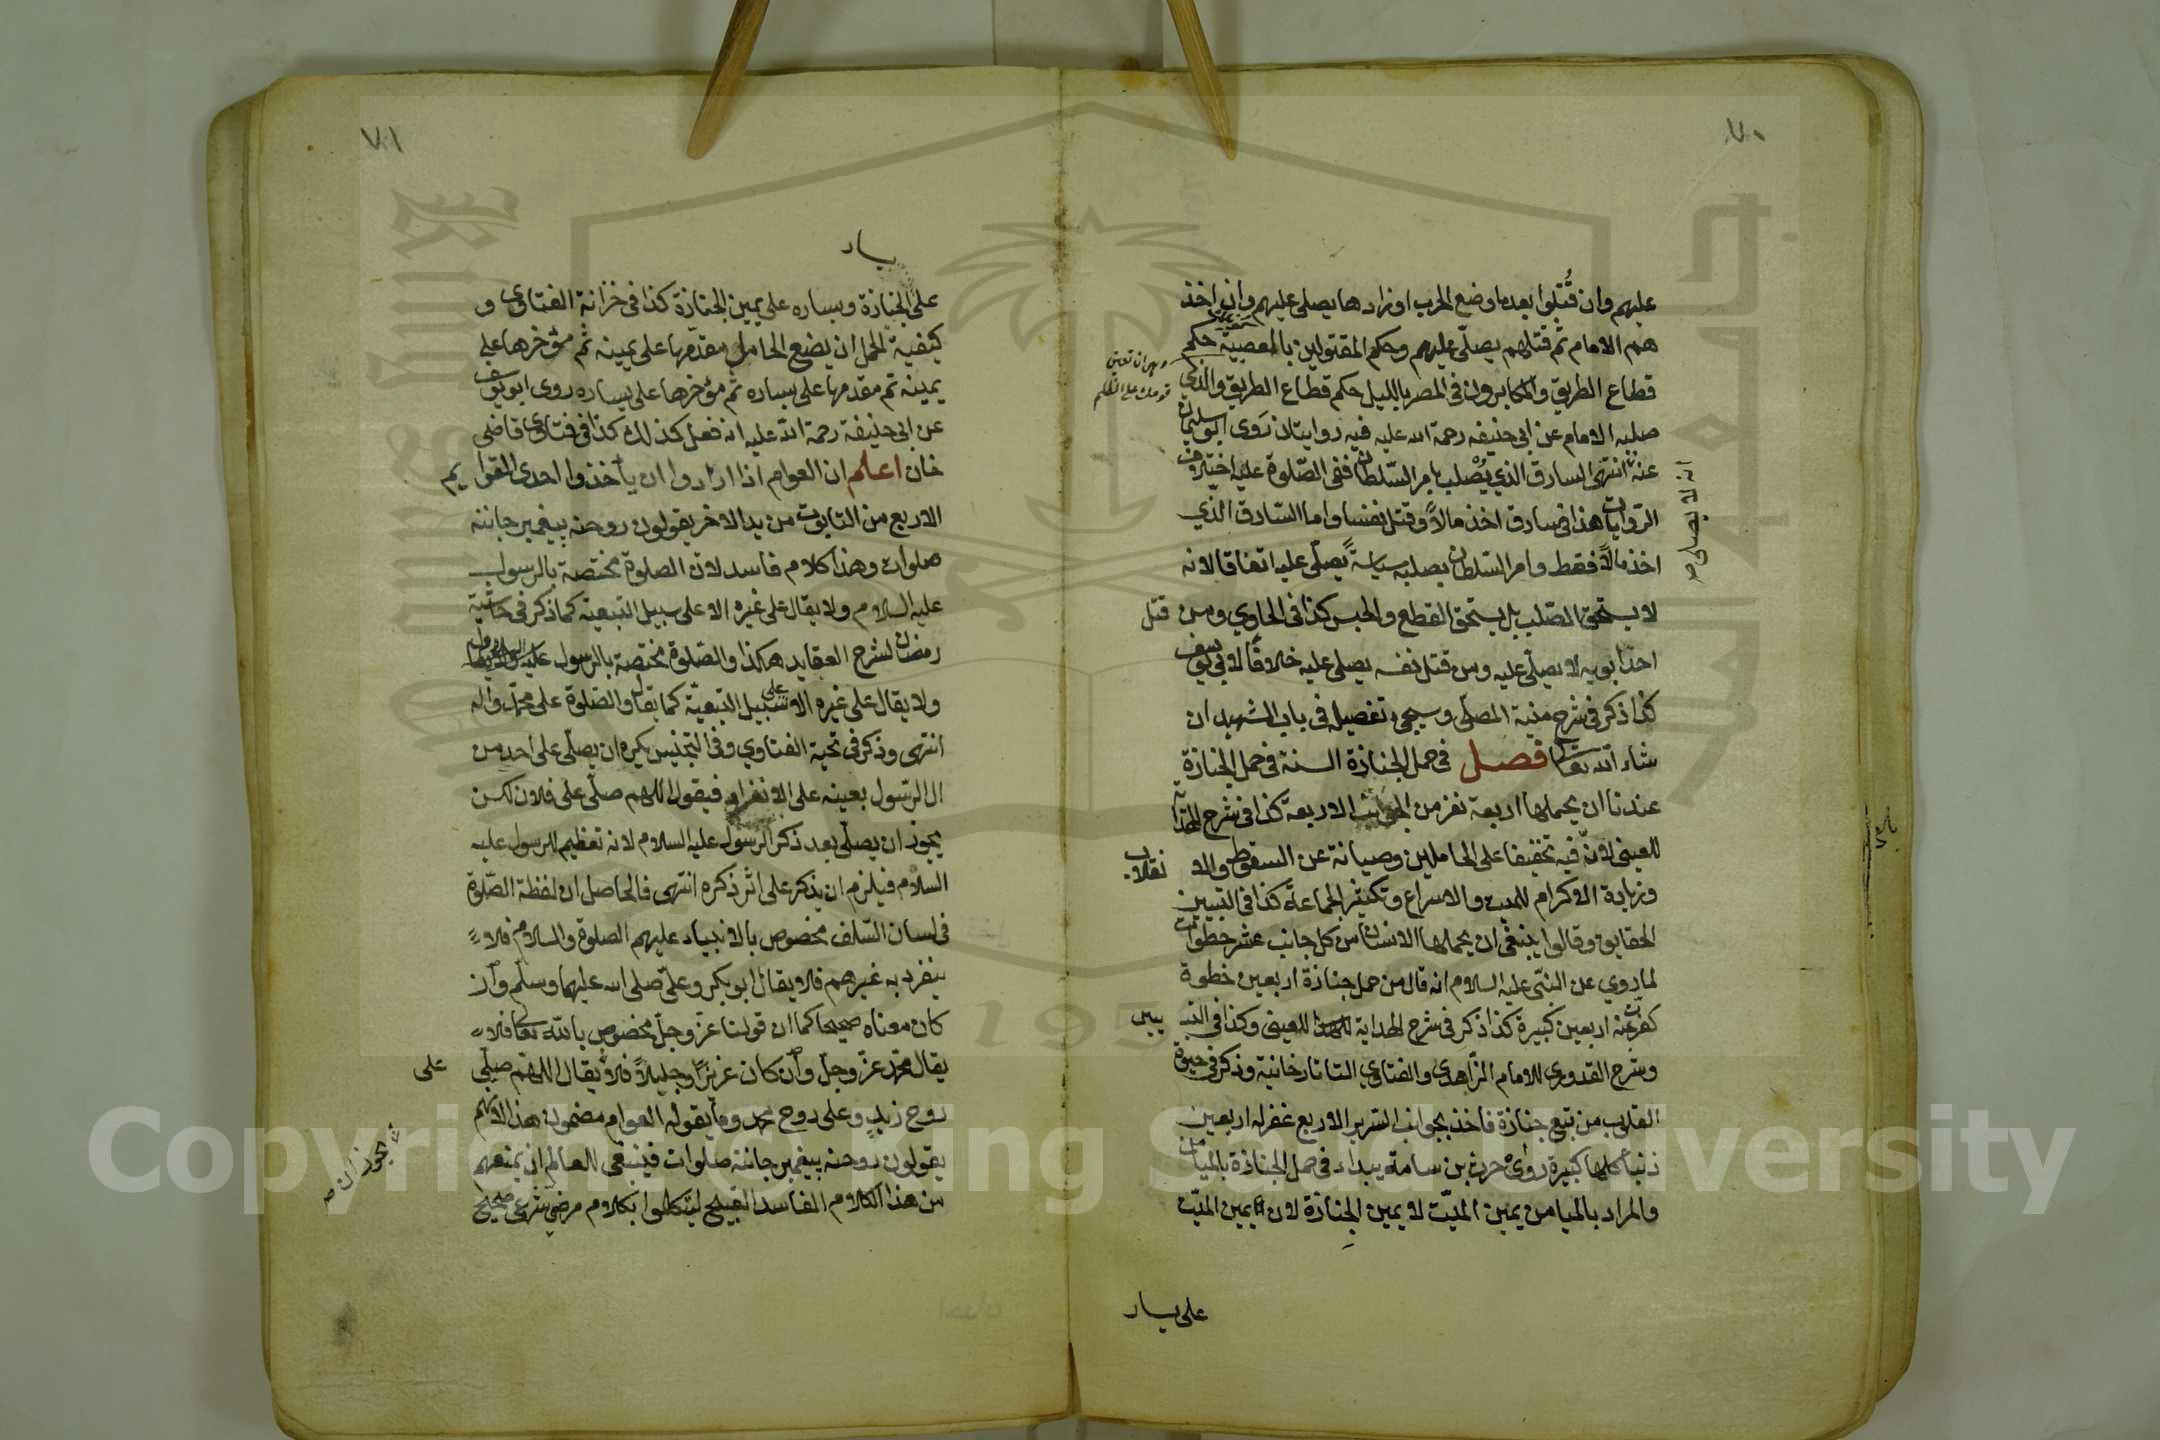 ٧٠
عليهم وان قُتلوا بعد ما وضع الحرب اوزارها يصلى عليهم وان اخذ
هم الامام ثم قتلهم يصلّى عليهم وحكم المقتولين بالعصبية حكم
قطاع الطريق والمكابرون فى المصر بالليل حكم قطاع الطريق والذي
صلبه الامام عن ابى حنيفه رحمة الله عليه فيه روايتان روى ابو سليمان
عنه انتهى السارق الذي يُصْلب بامر السّلطان ففى الصّلوة عليه اختلاف
الروايات هذا فى سارق اخذ مالاً وقتل نفسا واما السّارق الذي
اخذ مالاً فقط وامر السّلطان بصلبه سياسةً يصلّى عليه اتفاقا لانه
لا يستحق الصّلب بل يستحق القطع والحبس كذا فى الحاوي ومن قتل
احد ابويه لا يصلّى عليه ومن قتل نفسه يصلى عليه خلافًا لابي يوسف
كذا ذكر فى شرح منية المصلّى وسيجئ تفصيله فى باب الشهيد ان
شاء الله تعالى فصل فى حمل الجنازة السنة فى حمل الجنازة
عندنا ان يحملها اربعة نفر من الجوانب الاربعة كذا فى شرح الهداية
للعينى لانّ فيه تخفيفا على الحاملين وصيانة عن السقوط والانقلاب
وزيادة الاكرام للميت والاسراع وتكثير الجماعة كذا فى التبيين
الحقايق وقالوا ينبغى ان يحملها الانسان من كل جانب عشر خطوات
لما روي عن النبّى عليه السلام انه قال من حمل جنازة اربعين خطوة
كفرت عنه اربعين كبيرة كذا ذكر فى شرح الهداية للعينى وكذا فى التبيين
وشرح القدورى للامام الزّاهدى والفتاوي التاتارخانية وذكر فى حيوة
القلوب من تبع جنازة فاخذ بجوانب السّرير الاربع غفر له اربعين
ذنبا كلها كبيرة رواه حرث بن سامة ويبداء فى حمل الجنازة بالميامن
والمراد بالميامن يمين الميّت لا يمين الجنازة لان يمين الميّت
على يسار
انه لا يصلى صح
٧١
يسار
على الجنازة ويساره على يمين الجنازة كذا فى خزانة الفتاوى و
كيفية الحمل ان يضع الحامل مقدّمها على يمينه ثم مؤخرها على
يمينه ثم مقدمها على يساره ثم مؤخرها على يساره روى ابو يوسف
عن ابى حنيفة رحمة الله عليه انه فعل كذلك كذا فى فتاوى قاضى
خان اعلم ان العوام اذا ارادوا ان يأخذوا احدى القوايم
الاربع من التابوت من يد الاخر يقولون روحنه پيغمبر جاننه
صلوات وهذا كلام فاسد لان الصلوة مختصة بالرسول
عليه السلام ولا يقال على غيره الا على سبيل التبعية كما ذكر فى حاشية
رمضان لشرح العقايد هكذا والصّلوة مختصة بالرسول عليه السلام
ولا يقال على غيره الا على سبيل التبعيّة كما يقال والصّلوة على محمّد واله
انتهى وذكر فى تحية الفتاوي وفى التجنيس يكره ان يصلّى على احد من
ال الرّسول بعينه على الانفراد فيقول اللهم صلّى على فلان لكن
يجوز ان يصلّى بعد ذكر الرسول عليه السلام لانه تعظيم للرسول عليه
السلام فيلزم ان يذكر على اثر ذكره انتهى فالحاصل ان لفظة الصّلوة
فى لسان السّلف مخصوص بالانبياء عليهم الصلوة والسلام فلا
ينفرد به غيرهم فلا يقال ابو بكر وعلىّ صلى الله عليهما وسلّم وان
كان معناه صحيحا كما ان قولنا عزّ وجلّ مخصوص بالله تعالى فلا
يقال محمّد عزّ وجلّ وان كان عزيزًا وجليلاً فلا يقال اللّهمّ صلّى على
روح زيدٍ وعلى روح محمد وما يقوله العوام مضمون هذا لانهم
يقولون روحنه پيغمبر جاننه صلوات فينبغى للعالم ان يمنعهم
من هذا الكلام الفاسد القبيح ليتكلموا بكلام مرضى شرعى صحيح
يجوز ان صح